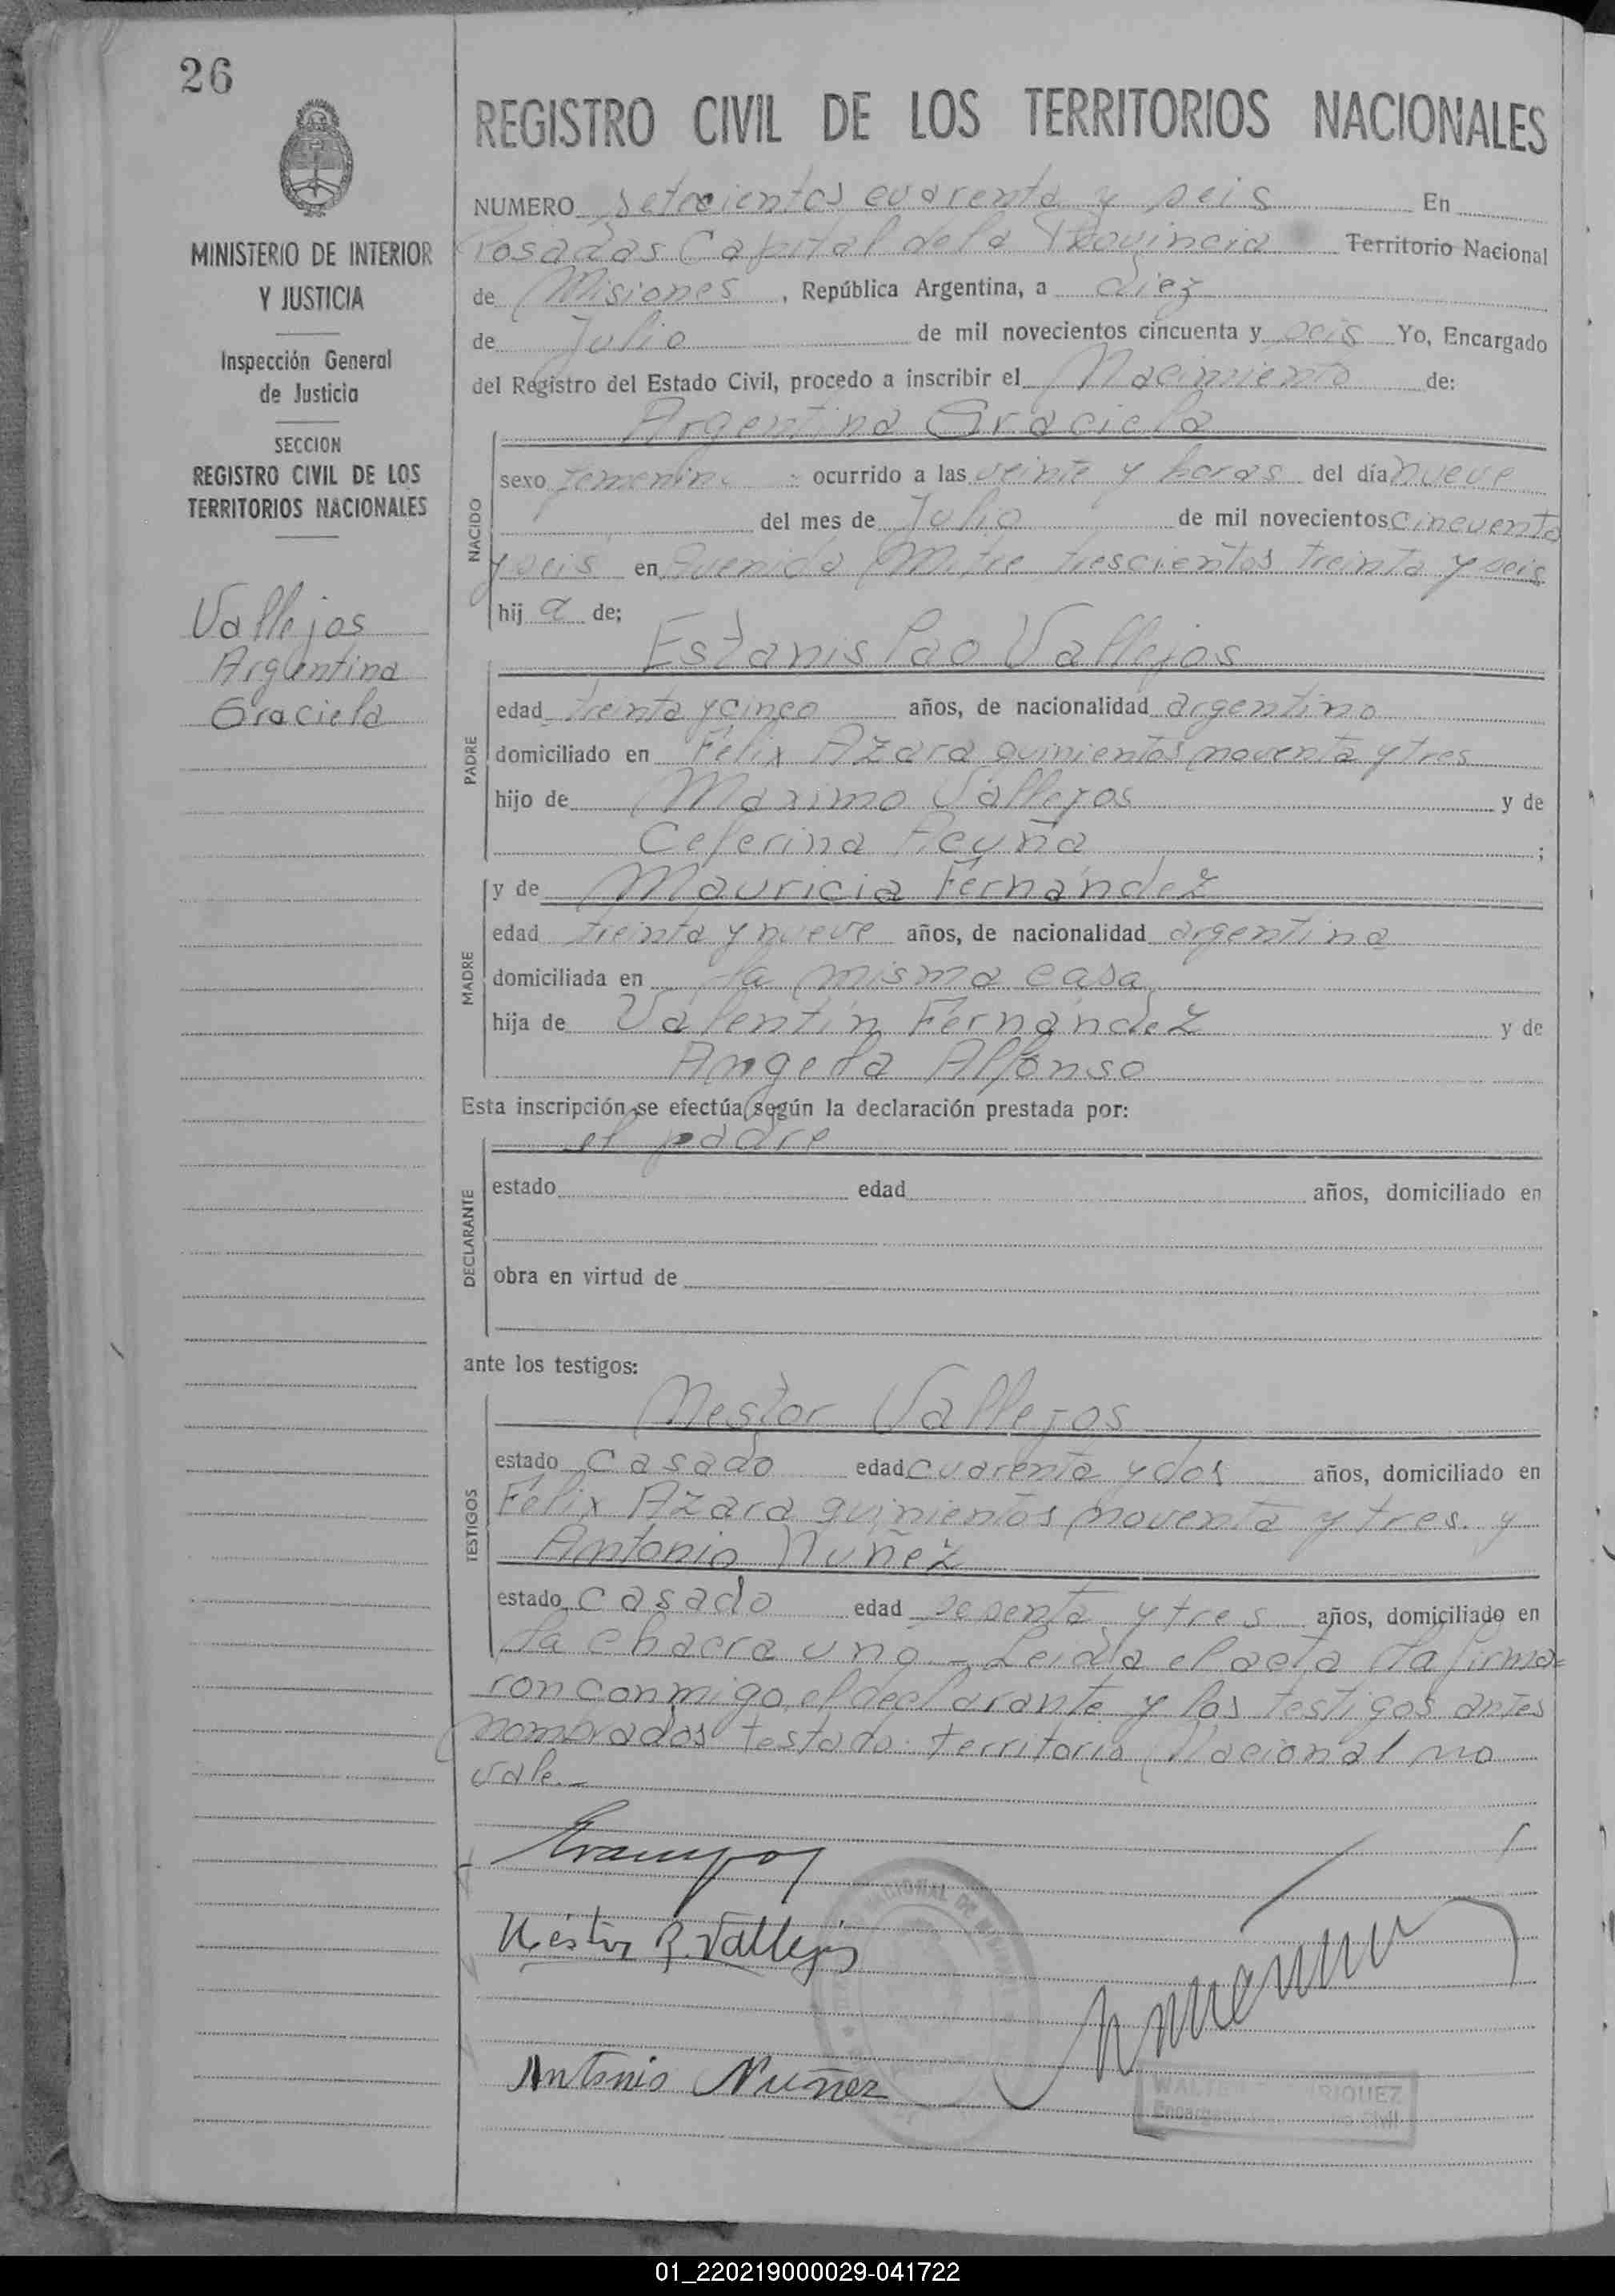 26
REGISTRO CIVIL DE LOS TERRITORIOS NACIONALES
MINISTERIO DE INTERIOR
Y JUSTICIA
Inspección General
de Justicia
SECCION
REGISTRO CIVIL DE LOS
TERRITORIOS NACIONALES
Vallejos
Argentina
Graciela
NUMERO setecientos cuarenta y seis En
Posadas Capital de la Provincia Territorio Nacional
de Misiones, República Argentina, a diez
de Julio de mil novecientos cincuenta y seis Yo, Encargado
del Registro del Estado Civil, procedo a inscribir el Nacimiento de:
Argentina Graciela
NACIDO
sexo femenino ocurrido a las veinte y horas del día nueve
del mes de Julio de mil novecientos cincuenta
y seis en Avenida Mitre trescientos treinta y seis
hija de;
Estanislao Vallejos
PADRE
edad treinta y cinco años, de nacionalidad argentino
domiciliado en Félix Azara quinientos noventa y tres
hijo de Maximo Vallejos y de
Ceferina Acuña;
MADRE
y de Mauricia Fernández
edad treinta y nueve años, de nacionalidad argentina
domiciliada en la misma casa
hija de Valentín Fernández y de
Angela Alfonso
Esta inscripción se efectúa según la declaración prestada por:
el padre
DECLARANTE
estado edad años, domiciliado en
obra en virtud de
ante los testigos:
Nestor Vallejos
TESTIGOS
estado casado edad cuarenta y dos años, domiciliado en
Félix Azara quinientos noventa y tres. y
Antonio Nuñez
estado casado edad sesenta y tres años, domiciliado en
la chacra uno - Leída el acta la firma=
ron conmigo, el declarante y los testigos antes
nombrados testado: territorio Nacional no
vale.-
Néstor R. Vallejos
Antonio Nuñez
01_220219000029-041722